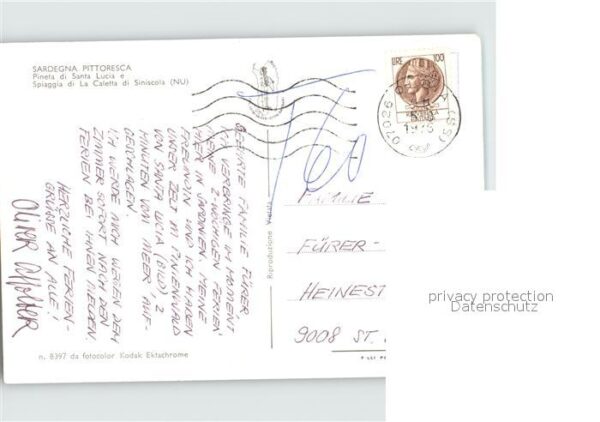 SARDEGNA PITTORESCA
Pineta di Santa Lucia e
Spiaggia di La Caletta di Siniscola (NU)
LIRE 100
07026 O A (SS)
1976
GEEHRTE FAMILIE FÜRER,
ICH VERBRINGE IM MOMENT
MEINE 2-WÖCHIGEN FERIEN
HIER IN SARDINIEN. MEINE
FREUNDIN UND ICH HABEN
UNSER ZELT IM PINIENWALD
VON SANTA LUCIA (BILD) 2
MINUTEN VOM MEER AUF-
GESCHLAGEN.
ICH WERDE MICH WEGEN DEM
ZIMMER SOFORT NACH DEN
FERIEN BEI IHNEN MELDEN.
HERZLICHE FERIEN-
GRÜSSE AN ALLE!
Riproduzione Vietata
FAMILIE
FÜRER-
HEINEST
9008 ST.
n. 8397 da fotocolor Kodak Ektachrome
privacy protection
Datenschutz